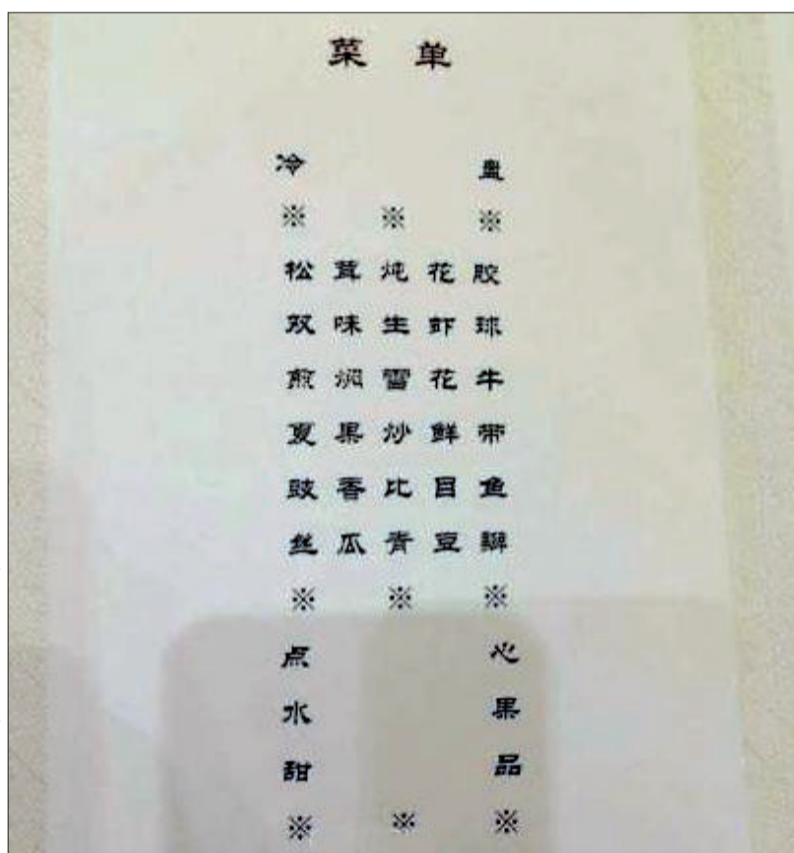 菜 单
冷 盘
※ ※ ※
松 茸 炖 花 胶
双 味 生 虾 球
煎 焗 雪 花 牛
夏 果 炒 鲜 带
豉 香 比 目 鱼
丝 瓜 青 豆 瓣
※ ※ ※
点 心
水 果
甜 品
※ ※ ※